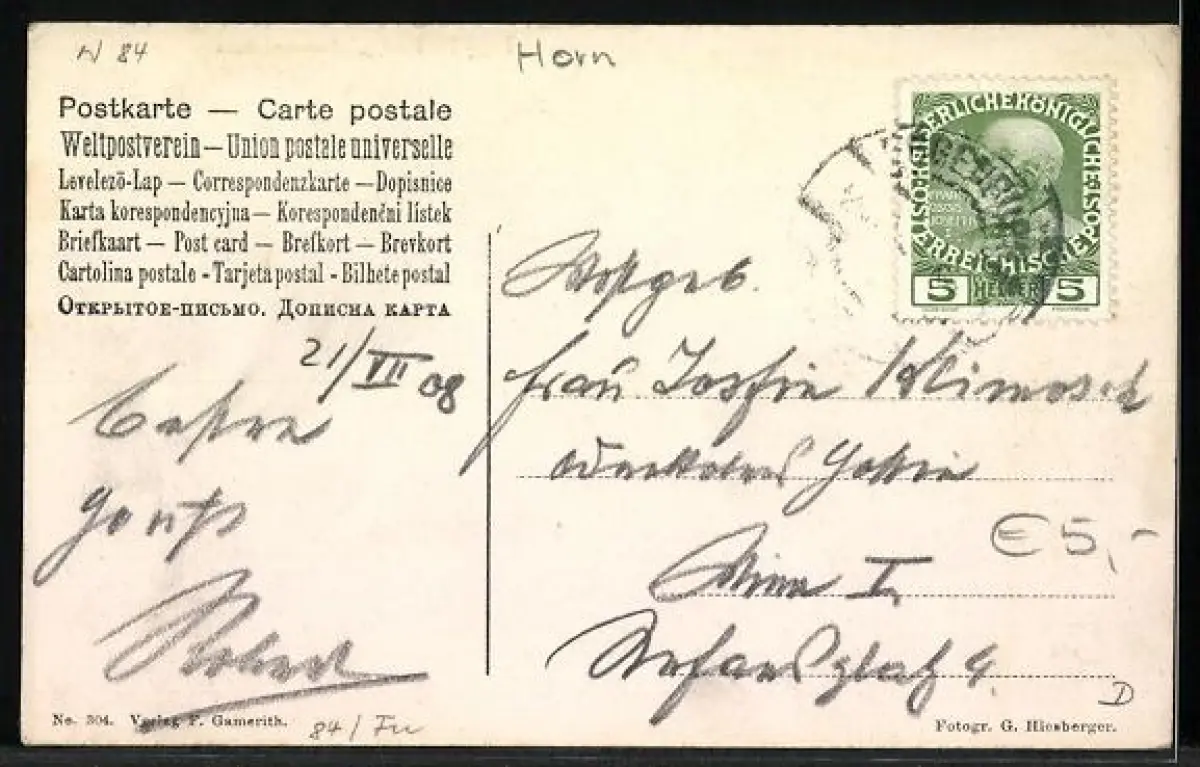 W 84
Horn
Postkarte — Carte postale
Weltpostverein — Union postale universelle
Levelező-Lap — Correspondenzkarte — Dopisnice
Karta korespondencyjna — Korespondenčni listek
Briefkaart — Post card — Brefkort — Brevkort
Cartolina postale - Tarjeta postal - Bilhete postal
Открытое-письмо. Дописна карта
KAISERLICHE KÖNIGLICHE ÖSTERREICHISCHE POST
5 HELLER 5
21/VII 08
Wohlgeb.
Frau
Gruß
Robert
Wien I.
Stefansplatz 9.
€ 5,-
D
No. 304. Verlag F. Gamerith.
84/Fu
Fotogr. G. Hiesberger.